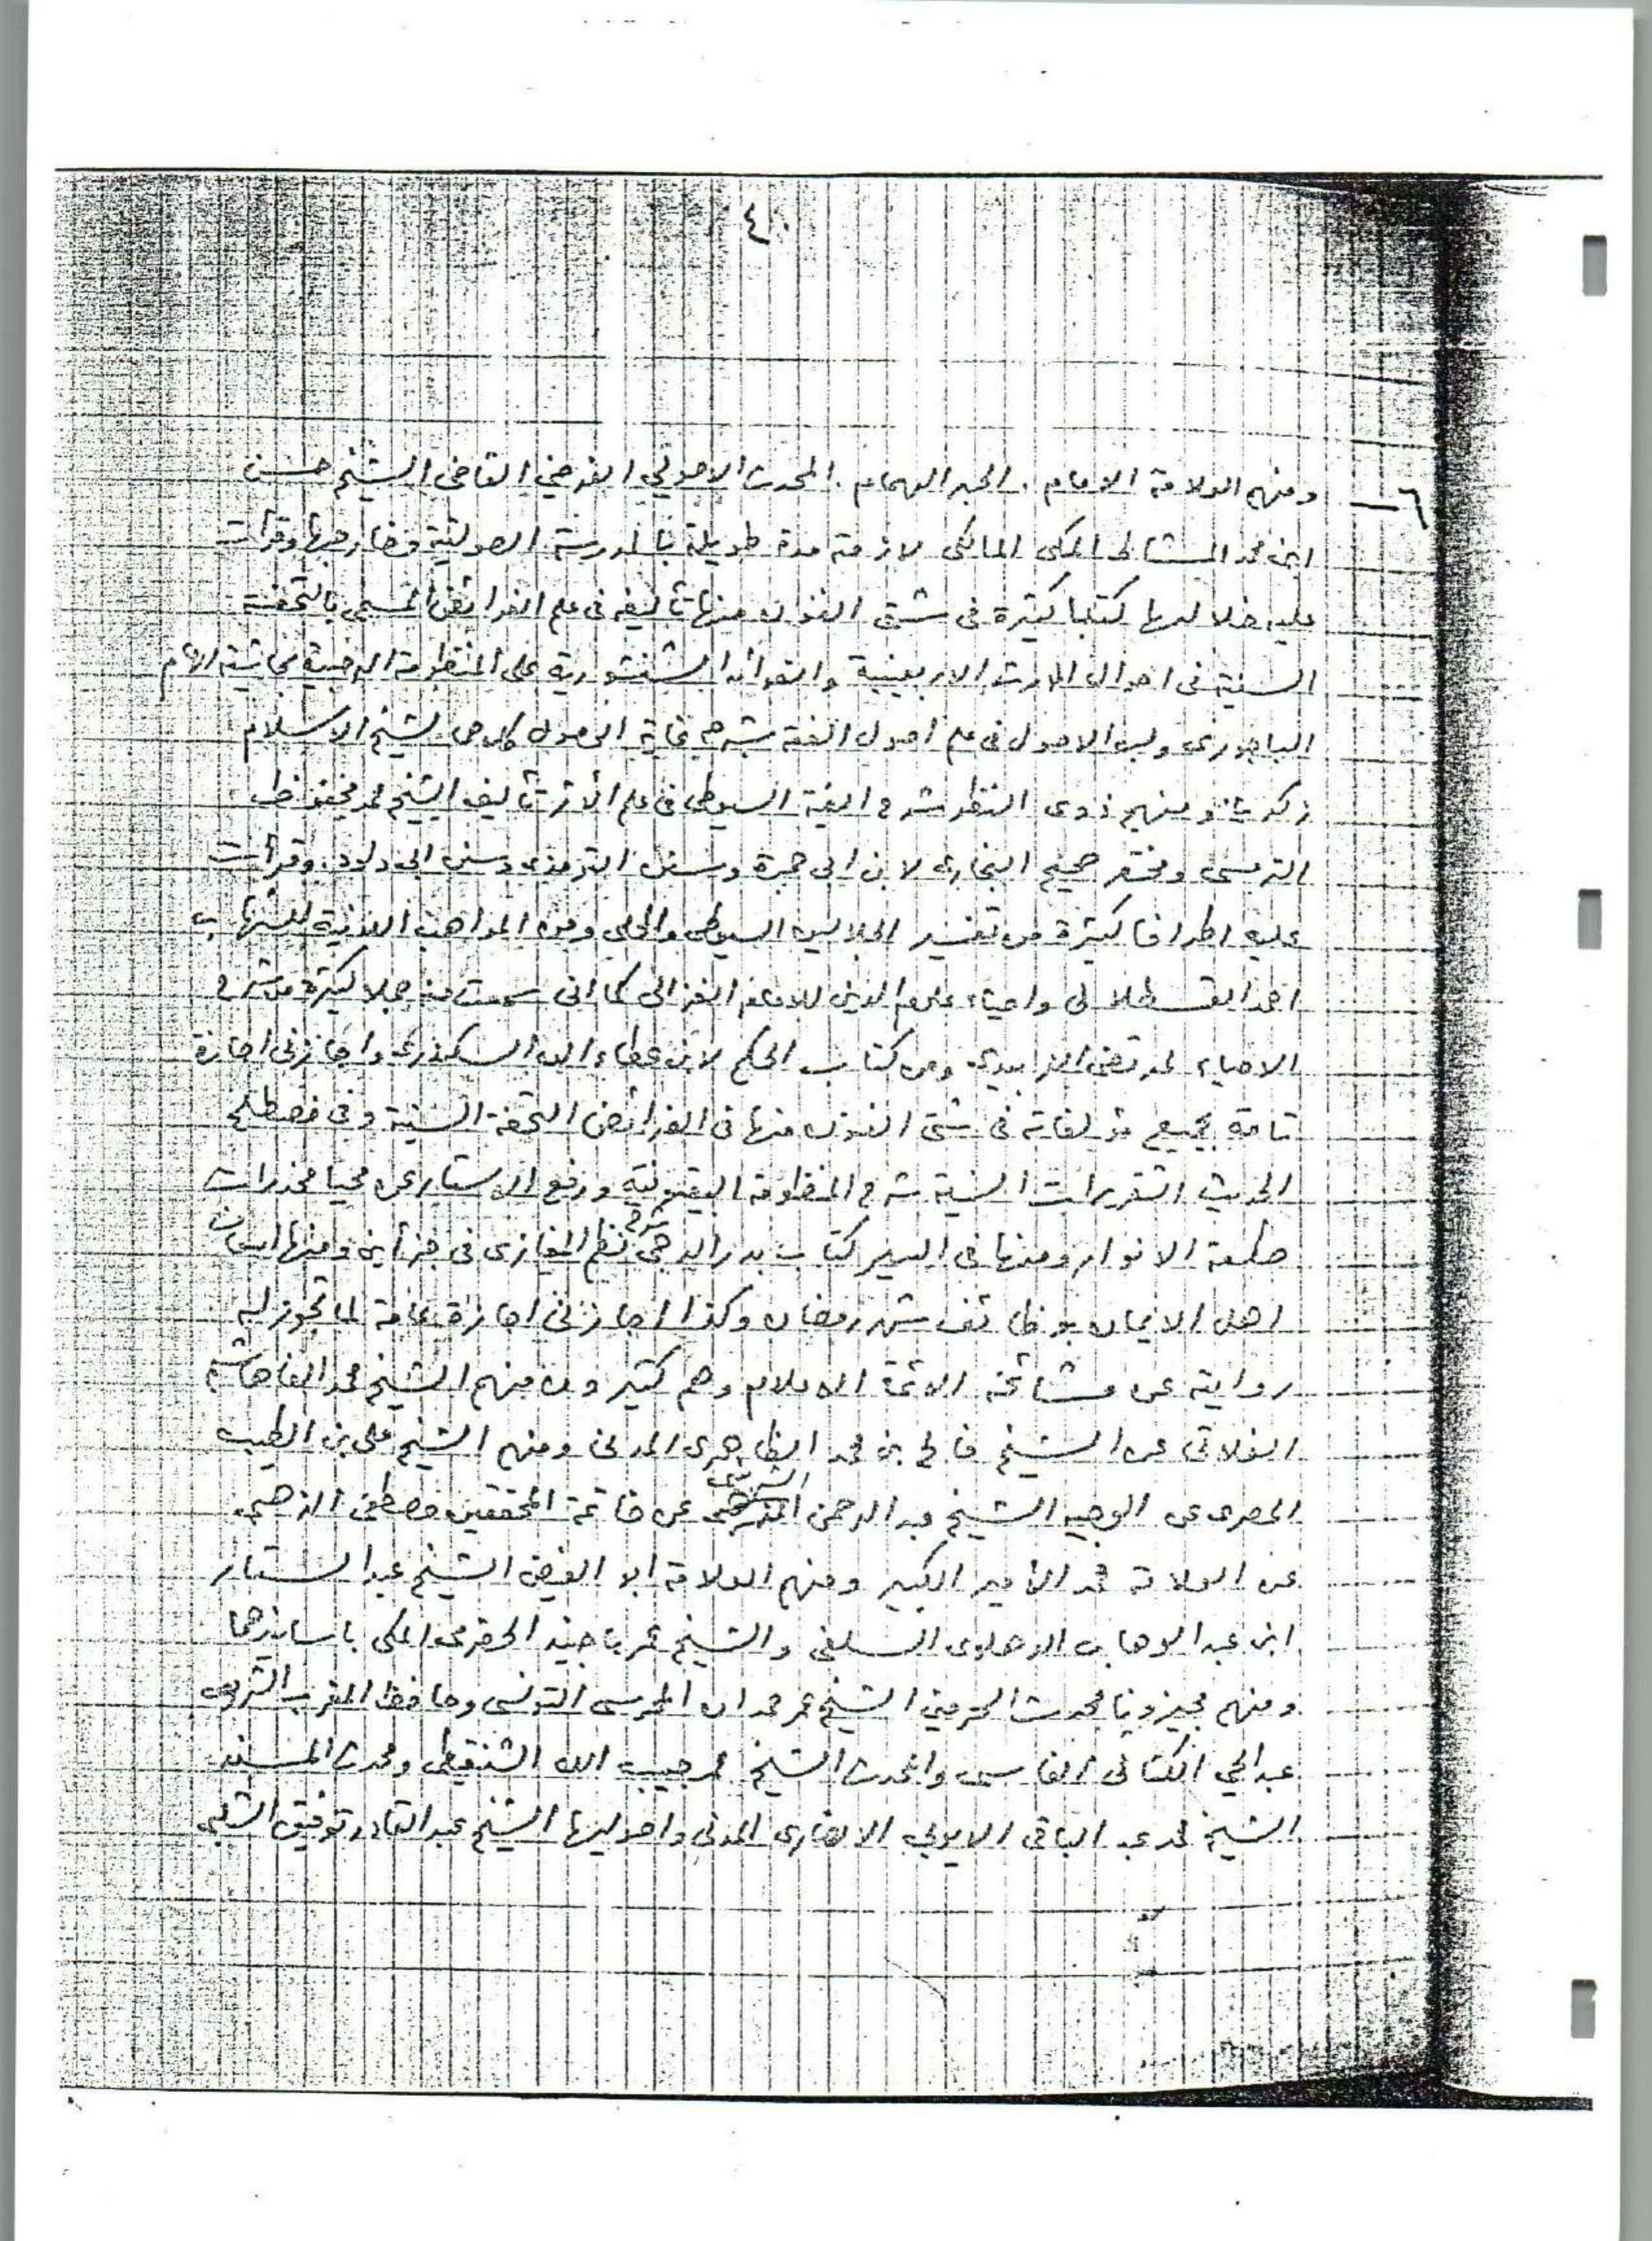 ٤
٦ــ ومنهم العلامة الامام . الحبر الهمام . المحدث الاصولي الفرضي القاضي الشيخ حسن
ابن محمد المشاط المكى المالكى لازمته مدة طويلة بالمدرسة الصولتية وخارجها وقرأت
عليه خلالها كتبا كثيرة فى شتى الفنون منها تأليفه فى علم الفرائض المسمى بالتحفة
السنية فى احوال الوارث الاربعينية والفوائد الشنشورية على المنظومة الرحبية بحاشية الامام
الباجورى ولب الاصول فى علم اصول الفقه بشرحه غاية الوصول كلاهما لشيخ الاسلام
زكريا ومنهج ذوى النظر شرح الفية السيوطى فى علم الأثر تأليف الشيخ محمد محفوظ
الترمسى ومختصر صحيح البخارى لابن ابى جمرة وسنن الترمذى وسنن ابى داود وقرأت
عليه اطرافا كثيرة من تفسير الجلالين السيوطى والمحلى ومن المواهب اللدنية للشهاب
احمد القسطلانى واحياء علوم الدين للامام الغزالى كما انى سمعت منه جملا كثيرة من شرح
الاحياء لمرتضى الزبيدى ومن كتاب الحكم لابن عطاء الله السكندرى واجازنى اجازة
تامة بجميع مؤلفاته فى شتى الفنون منها فى الفرائض التحفة السنية وفى مصطلح
الحديث التقريرات السنية شرح المنظومة البيقونية ورفع الاستار عن محيا مخدرات
طلعة الانوار ومنها فى السير كتاب بدر الدجى شرح نظم المغازى فى جزأين ومنها اسعاف
اهل الايمان بوظائف شهر رمضان وكذا اجازنى اجازة عامة لما تجوز له
روايته عن مشائخه الائمة الاعلام وهم كثيرون منهم الشيخ محمد الفاهاشم
الفلاتى عن الشيخ فالح بن محمد الظاهرى المدنى ومنهم الشيخ على بن الطيب
المصرى عن الوجيه الشيخ عبد الرحمن الشربينى عن خاتمة المحققين مصطفى الذهبى
عن العلامة محمد الأمير الكبير ومنهم العلامة ابو الفيض الشيخ عبد الستار
ابن عبد الوهاب الدهلوى السلفى والشيخ عمر باجنيد الحضرمى المكى باسانيدهما
ومنهم مجيزونا محدث الحرمين الشيخ عمر حمدان المحرسى التونسى وحافظ المغرب الشريف
عبد الحي الكتانى الفاسى والمحدث الشيخ محمد حبيب الله الشنقيطى ومحدث المسند
الشيخ محمد عبد الباقى الايوبي الانصارى المدنى واصوليها الشيخ عبد القادر توفيق الشلبى